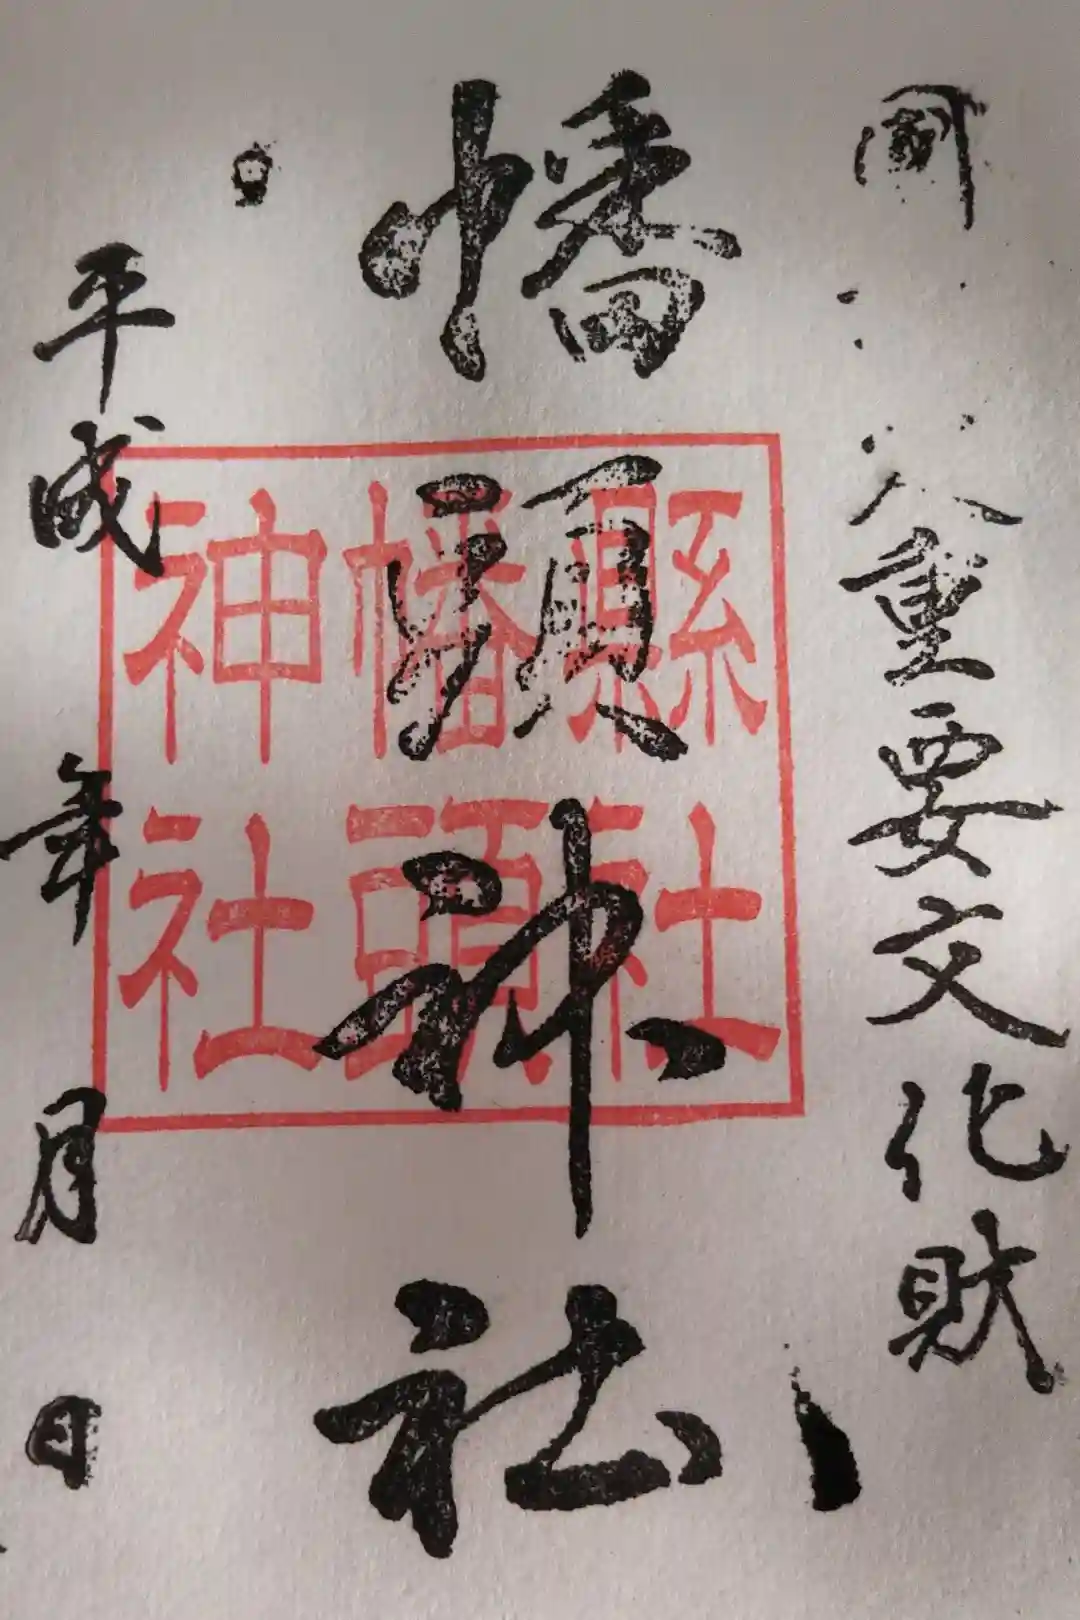 國 重要文化財
幡頭神社
縣社
幡頭
神社
平成 年 月 日